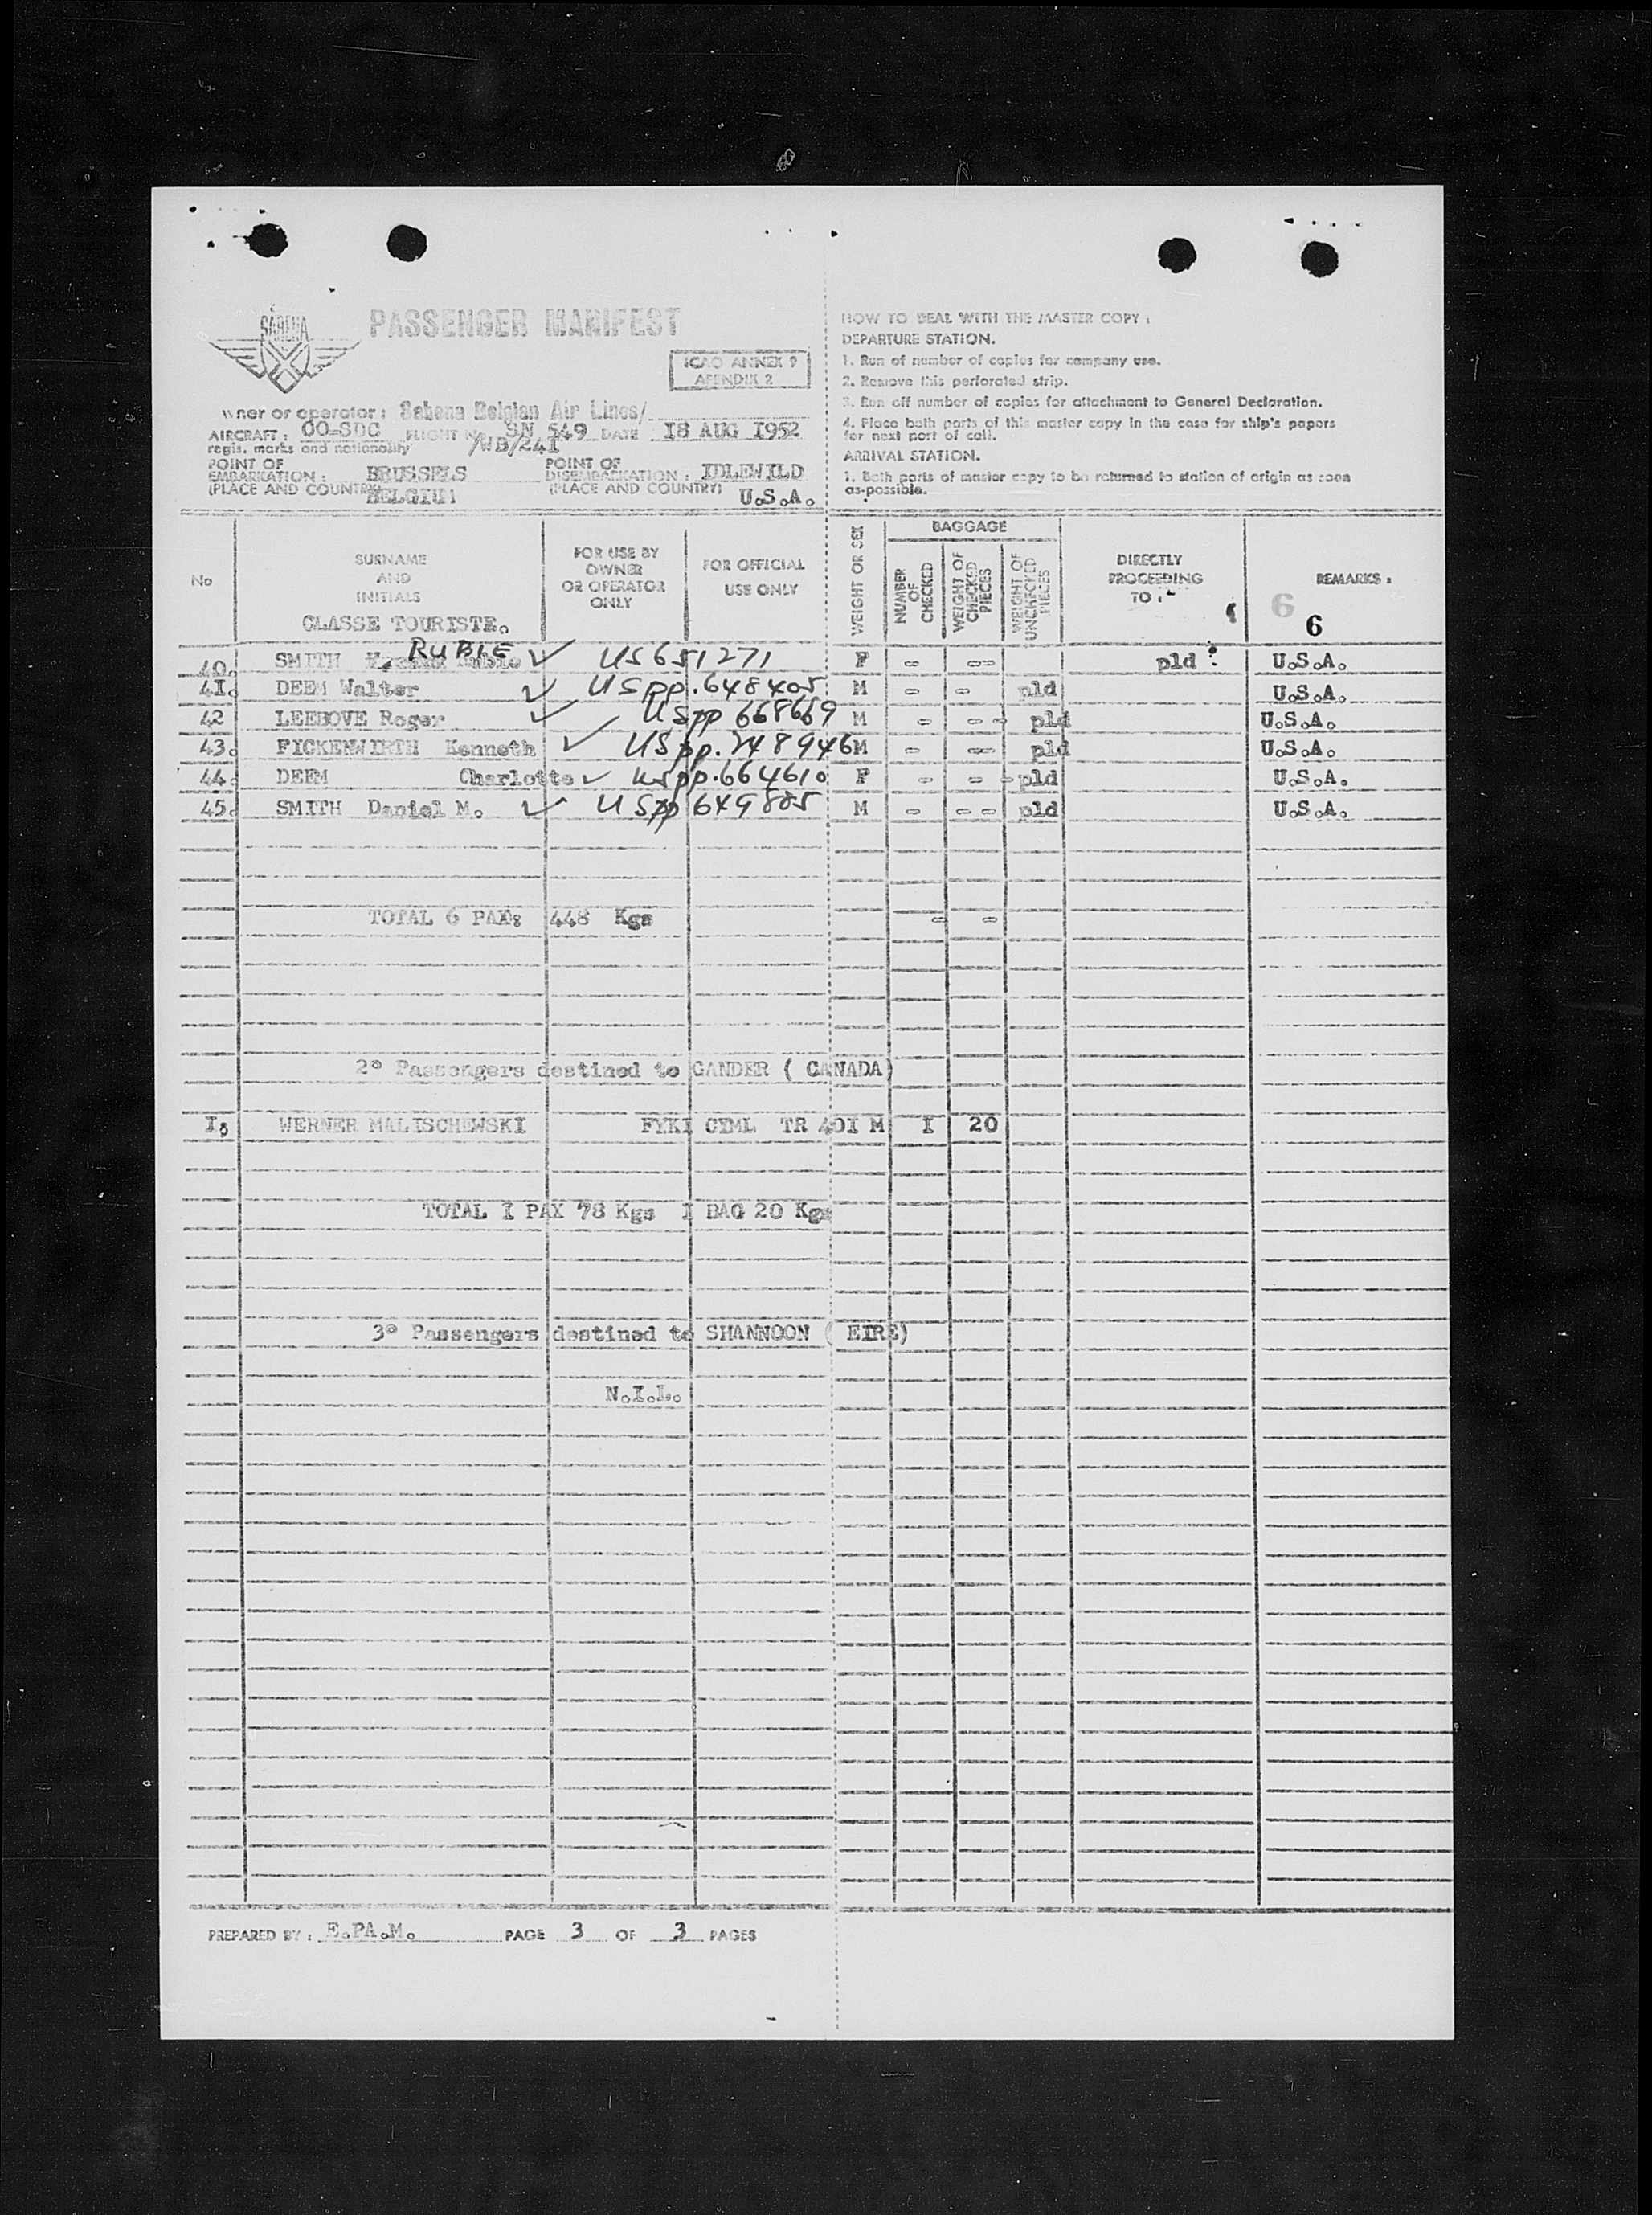 SABENA
PASSENGER MANIFEST
ICAO ANNEX 9
APENDIX 2
wner or operator : Sabena Belgian Air Lines/
AIRCRAFT : OO-SDC FLIGHT N° SN 549 DATE 18 AUG 1952
regis. marks and nationality /WB/241
POINT OF EMBARKATION : BRUSSELS
(PLACE AND COUNTRY) BELGIUM
POINT OF DISEMBARKATION : IDLEWILD
(PLACE AND COUNTRY) U.S.A.
HOW TO DEAL WITH THE MASTER COPY :
DEPARTURE STATION.
1. Run of number of copies for company use.
2. Remove this perforated strip.
3. Run off number of copies for attachment to General Declaration.
4. Place both parts of this master copy in the case for ship's papers
for next port of call.
ARRIVAL STATION.
1. Both parts of master copy to be returned to station of origin as soon
as-possible.
No
SURNAME
AND
INITIALS
CLASSE TOURISTE.
FOR USE BY
OWNER
OR OPERATOR
ONLY
FOR OFFICIAL
USE ONLY
WEIGHT OR SEX
BAGGAGE
NUMBER OF CHECKED
WEIGHT OF CHECKED PIECES
WEIGHT OF UNCKECKED PIECES
DIRECTLY
PROCEEDING
TO :
REMARKS :
6
6
40. SMITH RUBIE ✓ US651271 F - -- pld U.S.A.
41. DEEM Walter ✓ US pp.648405 M - - pld U.S.A.
42 LEEBOVE Roger ✓ US pp 668669 M - -- pld U.S.A.
43. FICKENWIRTH Kenneth ✓ US pp.248946 M - -- pld U.S.A.
44. DEEM Charlotte ✓ US pp.664610 F - - -pld U.S.A.
45. SMITH Daniel M. ✓ US pp 649885 M - -- pld U.S.A.
TOTAL 6 PAX: 448 Kgs - -
2° Passengers destined to GANDER ( CANADA)
I. WERNER MALISCHEWSKI FYKI CYML TR 40I M I 20
TOTAL I PAX 78 Kgs I BAG 20 Kgs
3° Passengers destined to SHANNOON ( EIRE)
N.I.L.
PREPARED BY : E.PA.M. PAGE 3 OF 3 PAGES